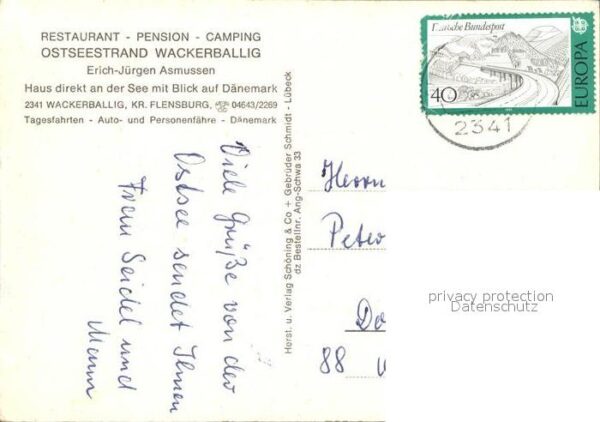 RESTAURANT - PENSION - CAMPING
OSTSEESTRAND WACKERBALLIG
Erich-Jürgen Asmussen
Haus direkt an der See mit Blick auf Dänemark
2341 WACKERBALLIG, KR. FLENSBURG, 04643/2269
Tagesfahrten - Auto- und Personenfähre - Dänemark
Viele Grüße von der
Ostsee sendet Ihnen
Frau Seidel und
Mann
Horst. u. Verlag Schöning & Co + Gebrüder Schmidt - Lübeck
dz Bestellnr. Ang-Schwa 33
Deutsche Bundespost
40
EUROPA
2341
Herrn
Peter
Do
88 
privacy protection
Datenschutz